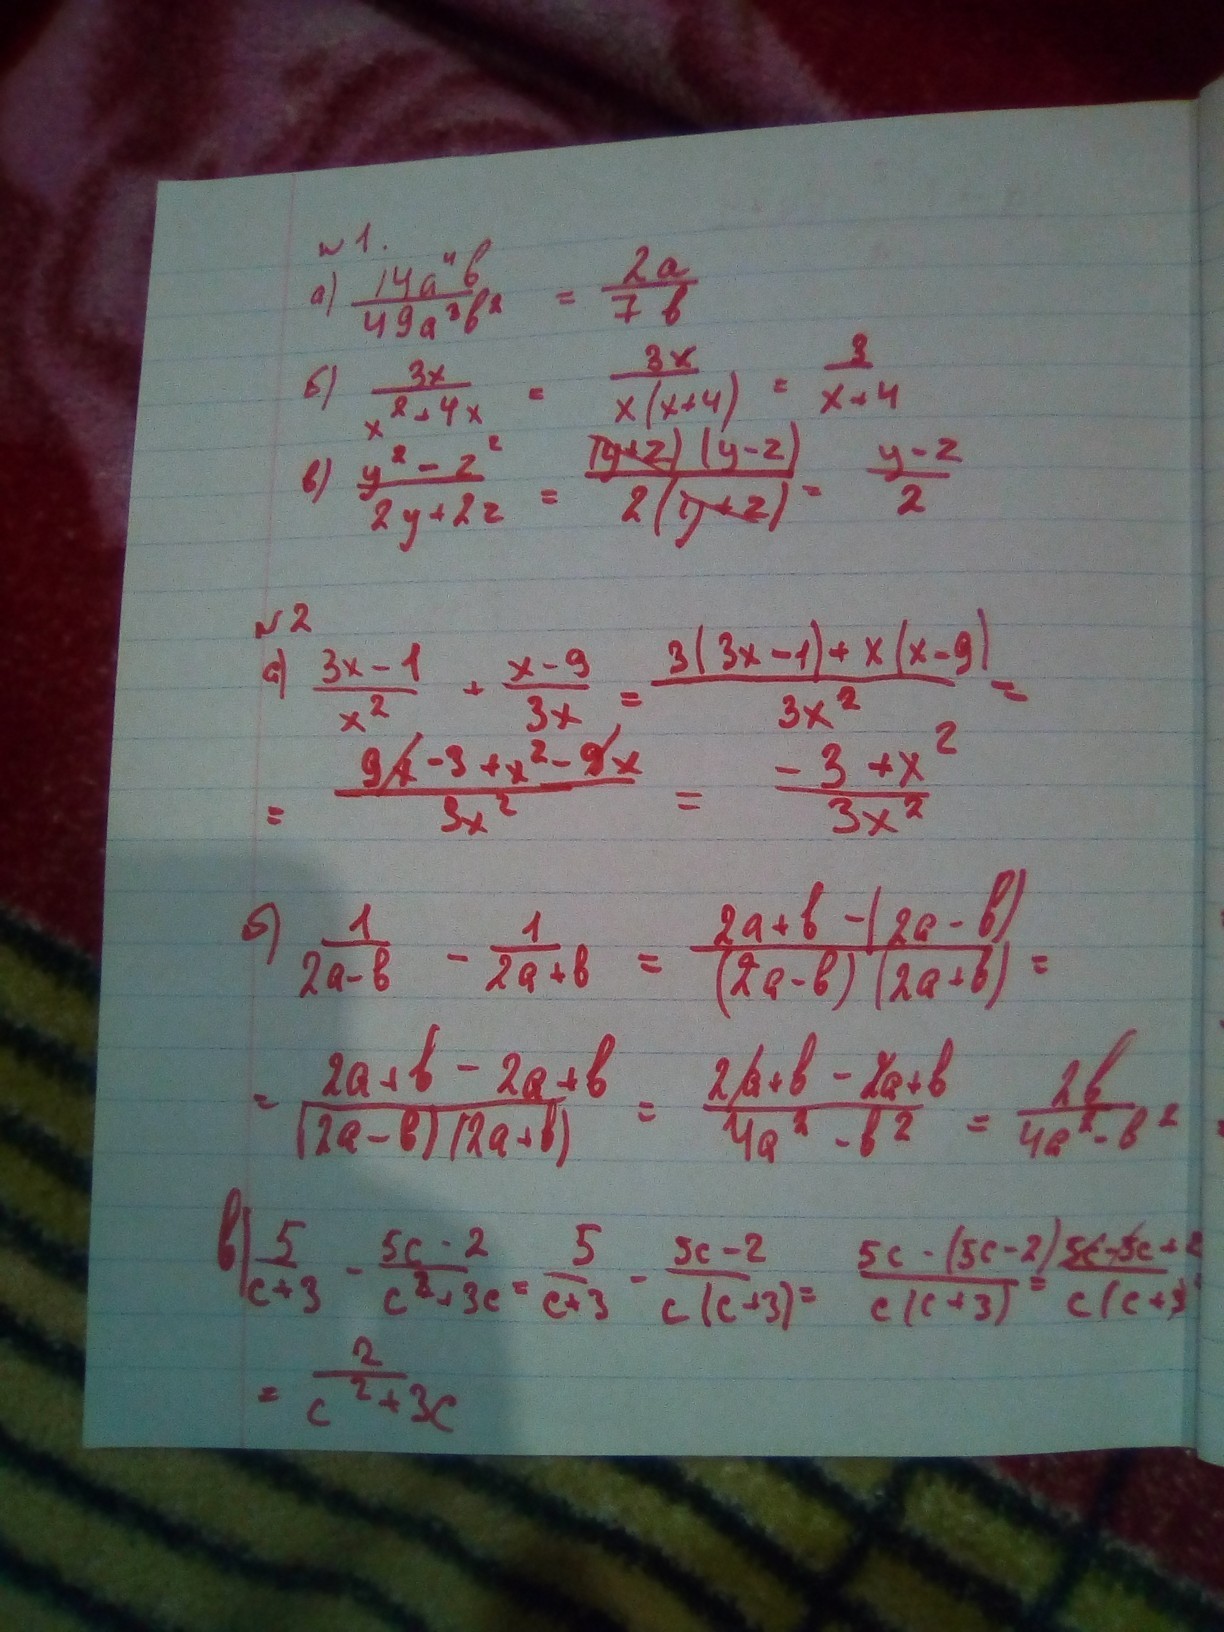 №1.
а) 14a⁴b/49a³b² = 2a/7b
б) 3x/x²+4x = 3x/x(x+4) = 3/x+4
в) y²-z²/2y+2z = (y+z)(y-z)/2(y+z) = y-z/2
№2
а) 3x-1/x² + x-9/3x = 3(3x-1)+x(x-9)/3x² =
= 9x-3+x²-9x/3x² = -3+x²/3x²
б) 1/2a-b - 1/2a+b = 2a+b-(2a-b)/(2a-b)(2a+b) =
= 2a+b-2a+b/(2a-b)(2a+b) = 2a+b-2a+b/4a²-b² = 2b/4a²-b²
в) 5/c+3 - 5c-2/c²+3c = 5/c+3 - 5c-2/c(c+3) = 5c-(5c-2)/c(c+3) = 5c-5c+2/c(c+3)
= 2/c²+3c